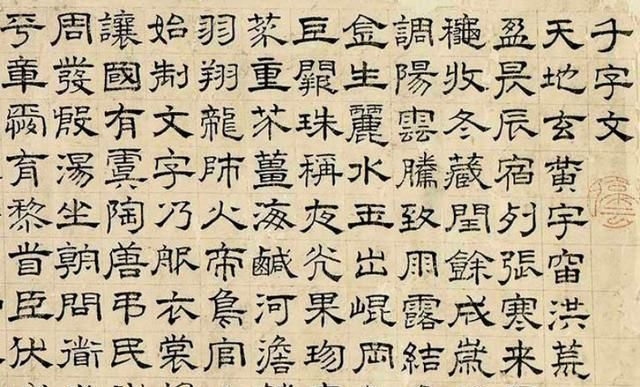 千字文
天地玄黃宇宙洪荒
盈昃辰宿列張寒来
龝收冬藏閏餘成歲
調陽雲騰致雨露結
金生麗水玉出崐岡
巨闕珠稱夜光果珍
菜重芥薑海鹹河澹
羽翔龍師火帝鳥官
始制文字乃服衣裳
讓國有虞陶唐弔民
周發殷湯坐朝問道
平章愛育黎首臣伏